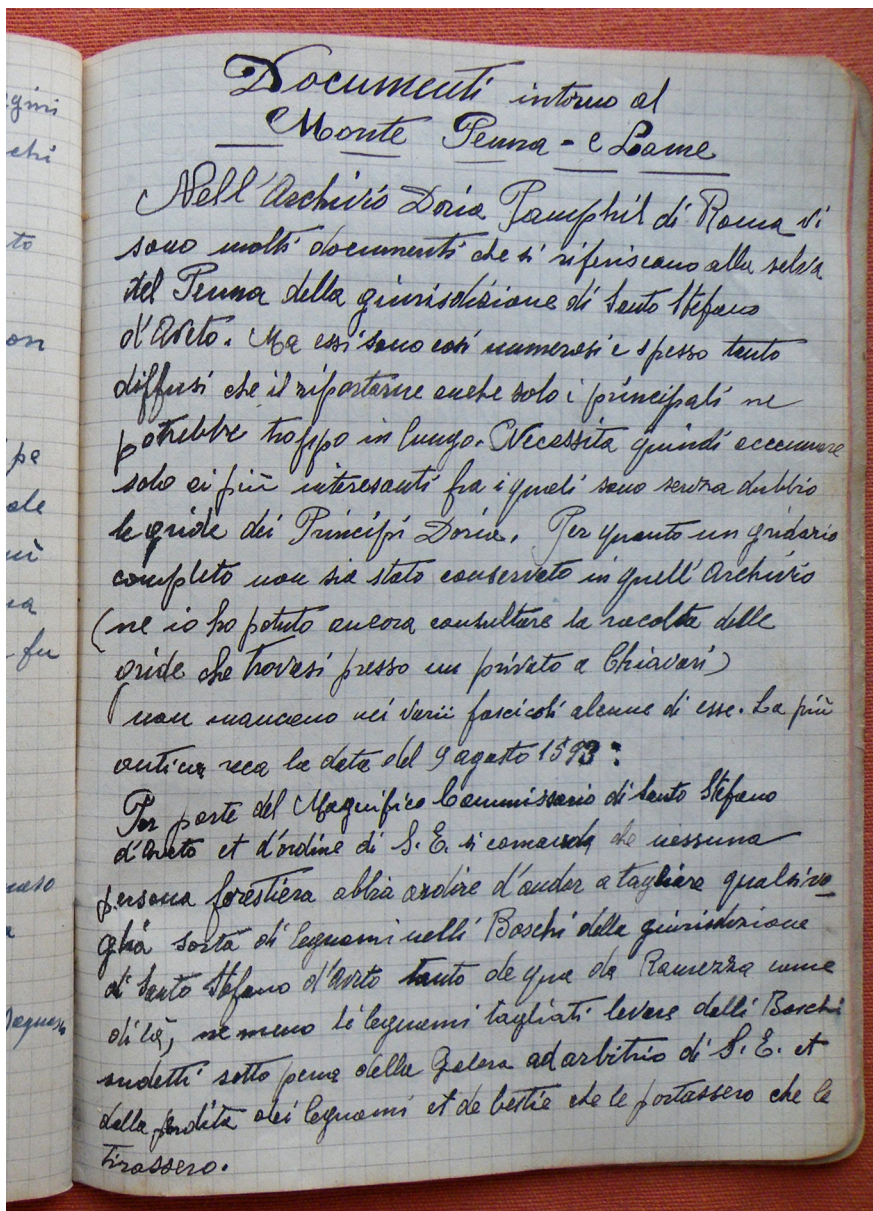 Documenti intorno al
Monte Penna - e Lame
Nell'Archivio Doria Pamphil di Roma vi
sono molti documenti che si riferiscono alla selva
del Penna della giurisdizione di Santo Stefano
d'Aveto. Ma essi sono così numerosi e spesso tanto
diffusi che il riportarne anche solo i principali ne
potrebbe troppo in lungo. Necessita quindi accennare
solo ai più interesanti fra i quali sono senza dubbio
le gride dei Principi Doria. Per quanto un gridario
completo non sia stato conservato in quell'Archivio
(ne io ho potuto ancora consultare la raccolta delle
gride che trovasi presso un privato a Chiavari)
non mancano nei varii fascicoli alcune di esse. La più
antica reca la data del 9 agosto 1593:
Per parte del Magnifico Commissario di Santo Stefano
d'Aveto et d'ordine di S. E. si comanda che nessuna
persona forestiera abbia ardire d'andar a tagliare qualsivo-
glia sorta di legnami nelli Boschi della giurisdizione
di Santo Stefano d'Aveto tanto de qua da Ramezza come
di là, ne meno li legnami tagliati levare dalli Boschi
sudetti sotto pena della Galera ad arbitrio di S. E. et
della perdita dei legnami et de bestie che le portassero che le
tirassero.
gini
chi
to
on
pe
ale
ui
na
fu
naso
a